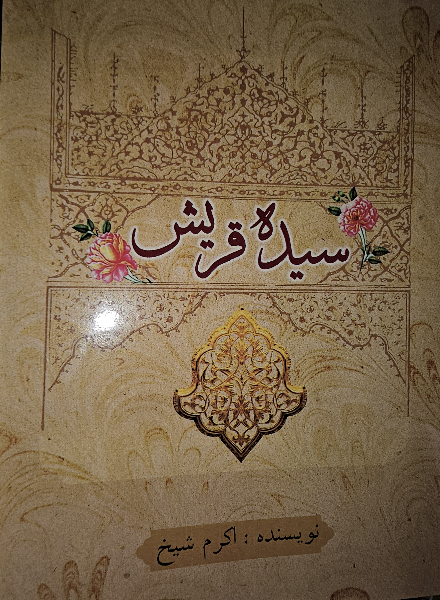 سیده قریش
نویسنده : اکرم شیخ